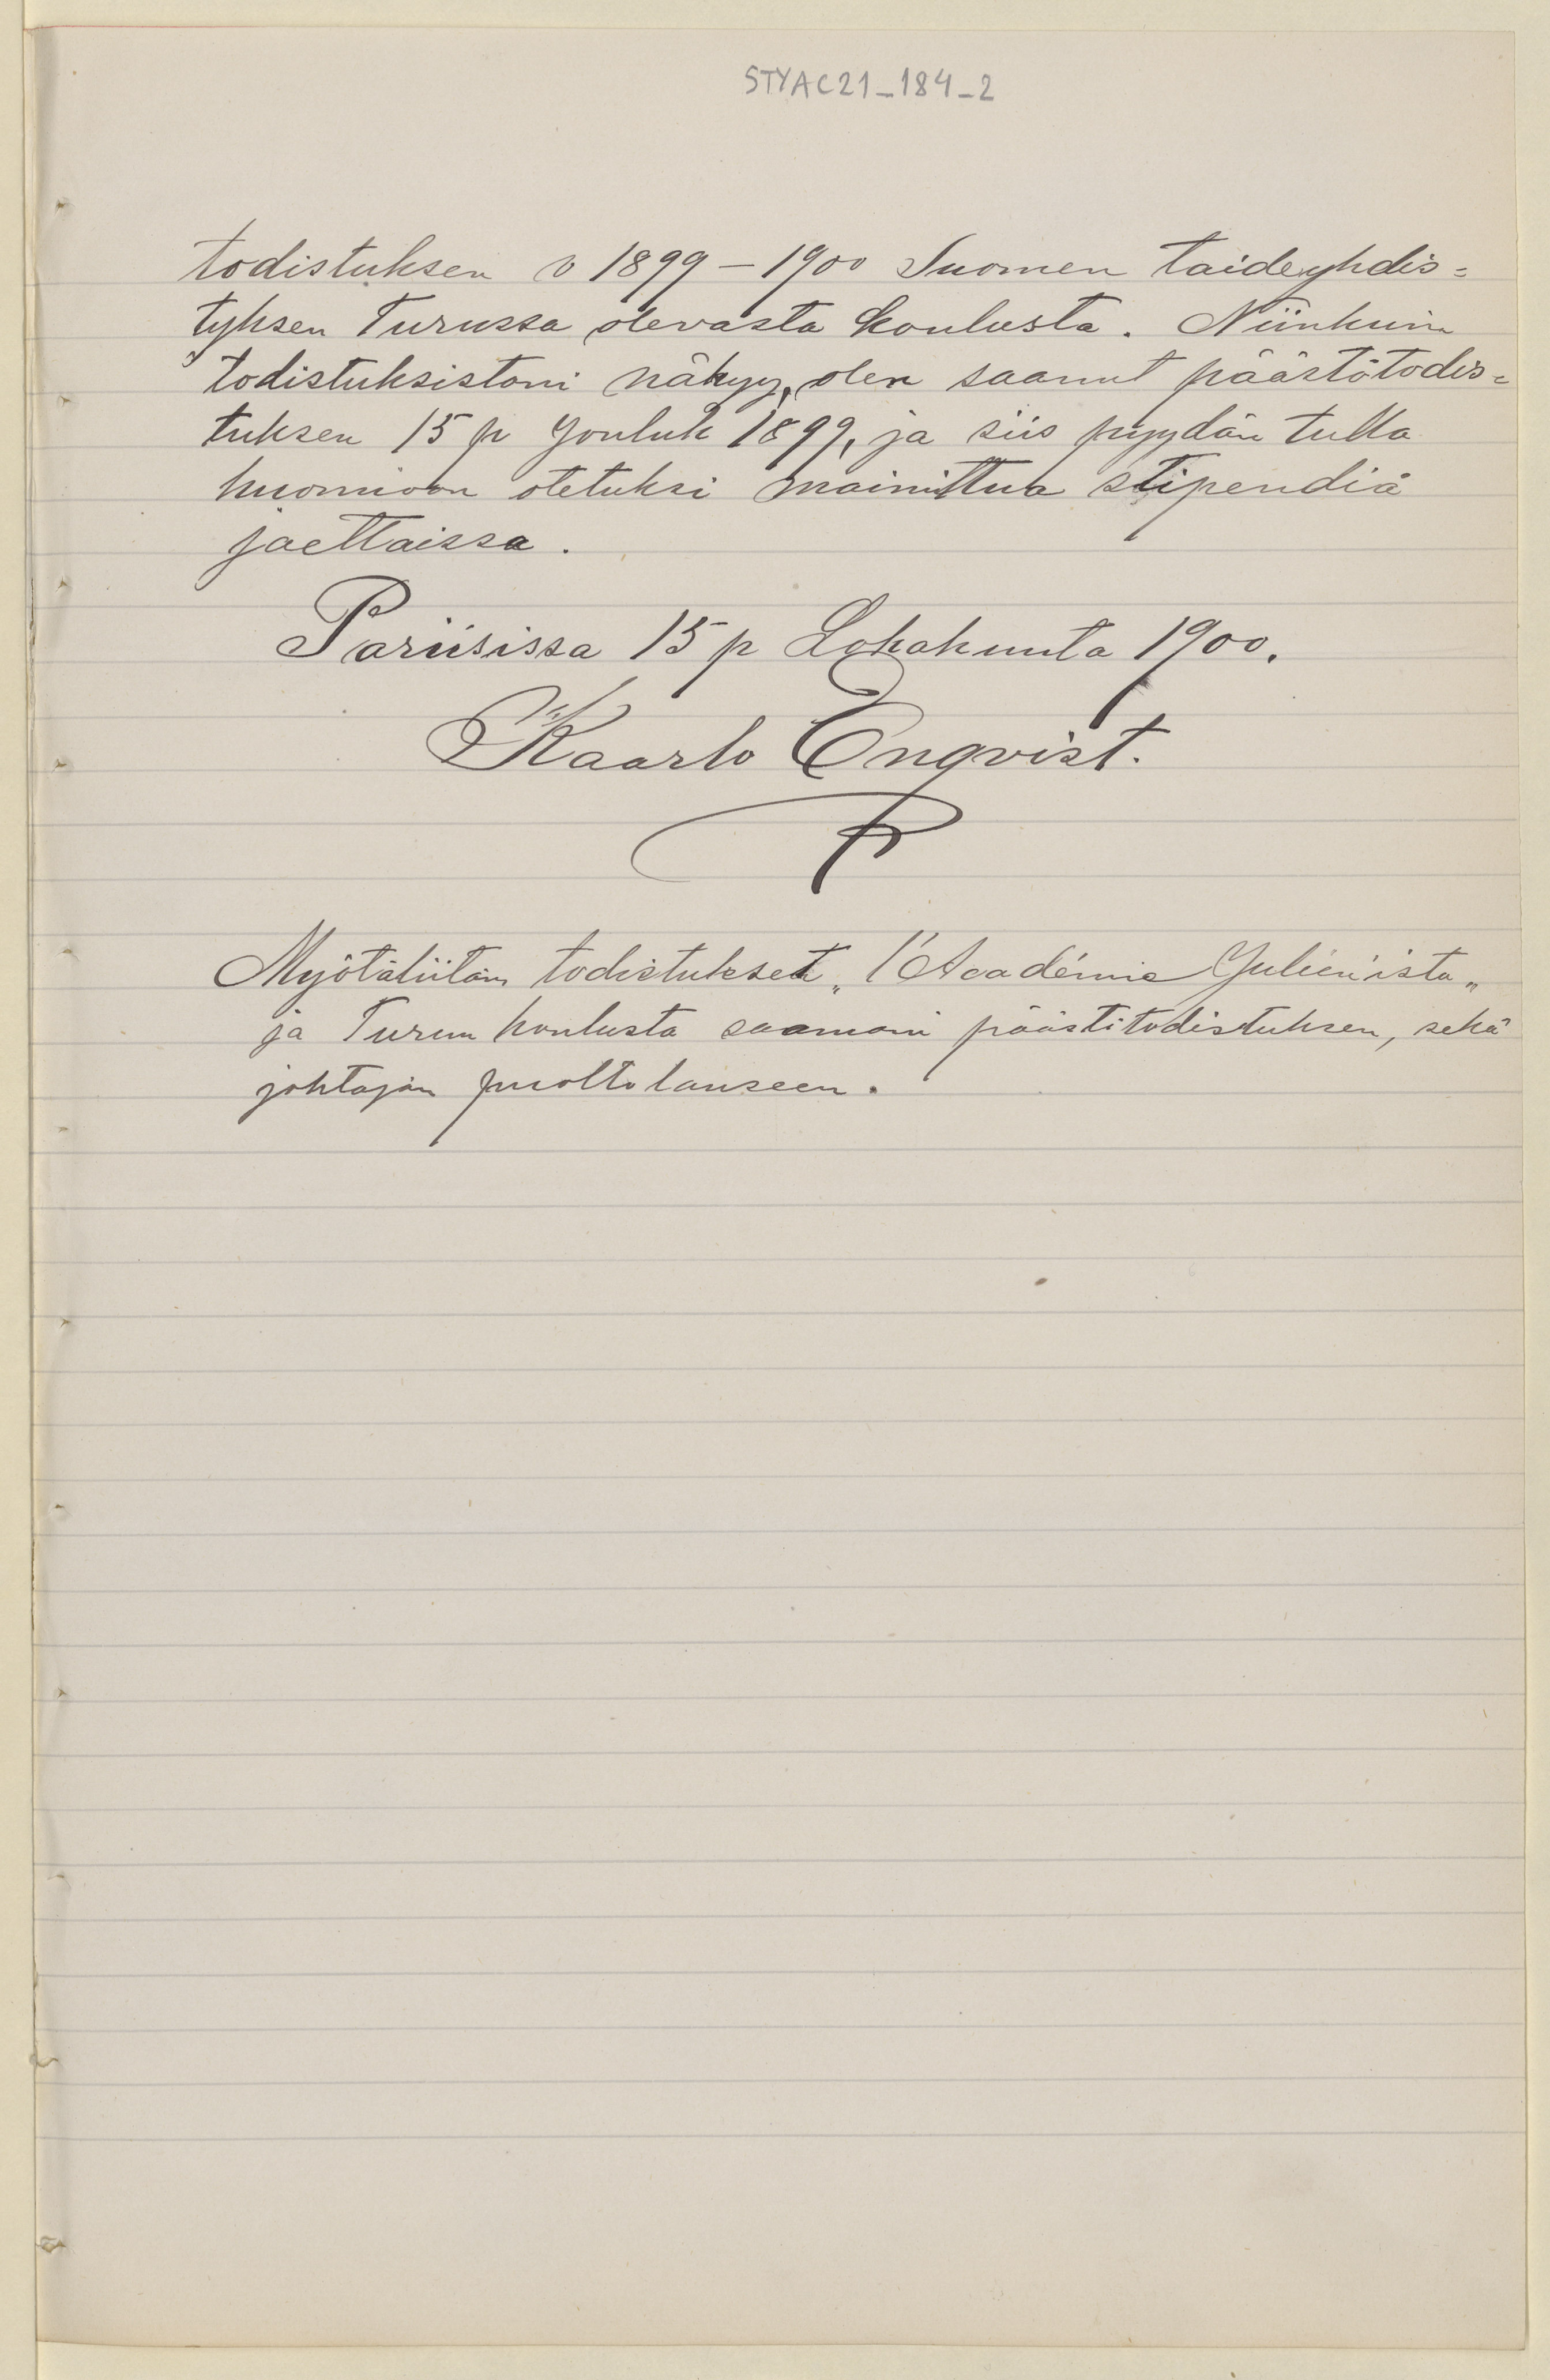 STYAC21_184_2
todistuksen v 1899-1900 Suomen taideyhdis=
tyksen Turussa olevasta koulusta. Niinkuin
todistuksistani näkyy, olen saanut päästötodis=
tuksen 15 p Jouluk 1899, ja siis pyydän tulla
huomioon otetuksi mainittua stipendiä
jaettaissa.
Pariisissa 15 p Lokakuuta 1900.
Kaarlo Enqvist.
Myötäliitän todistukset „l'Académie Julien'ista„
ja Turun koulusta saamani päästötodistuksen, sekä
johtajan puoltolauseen.